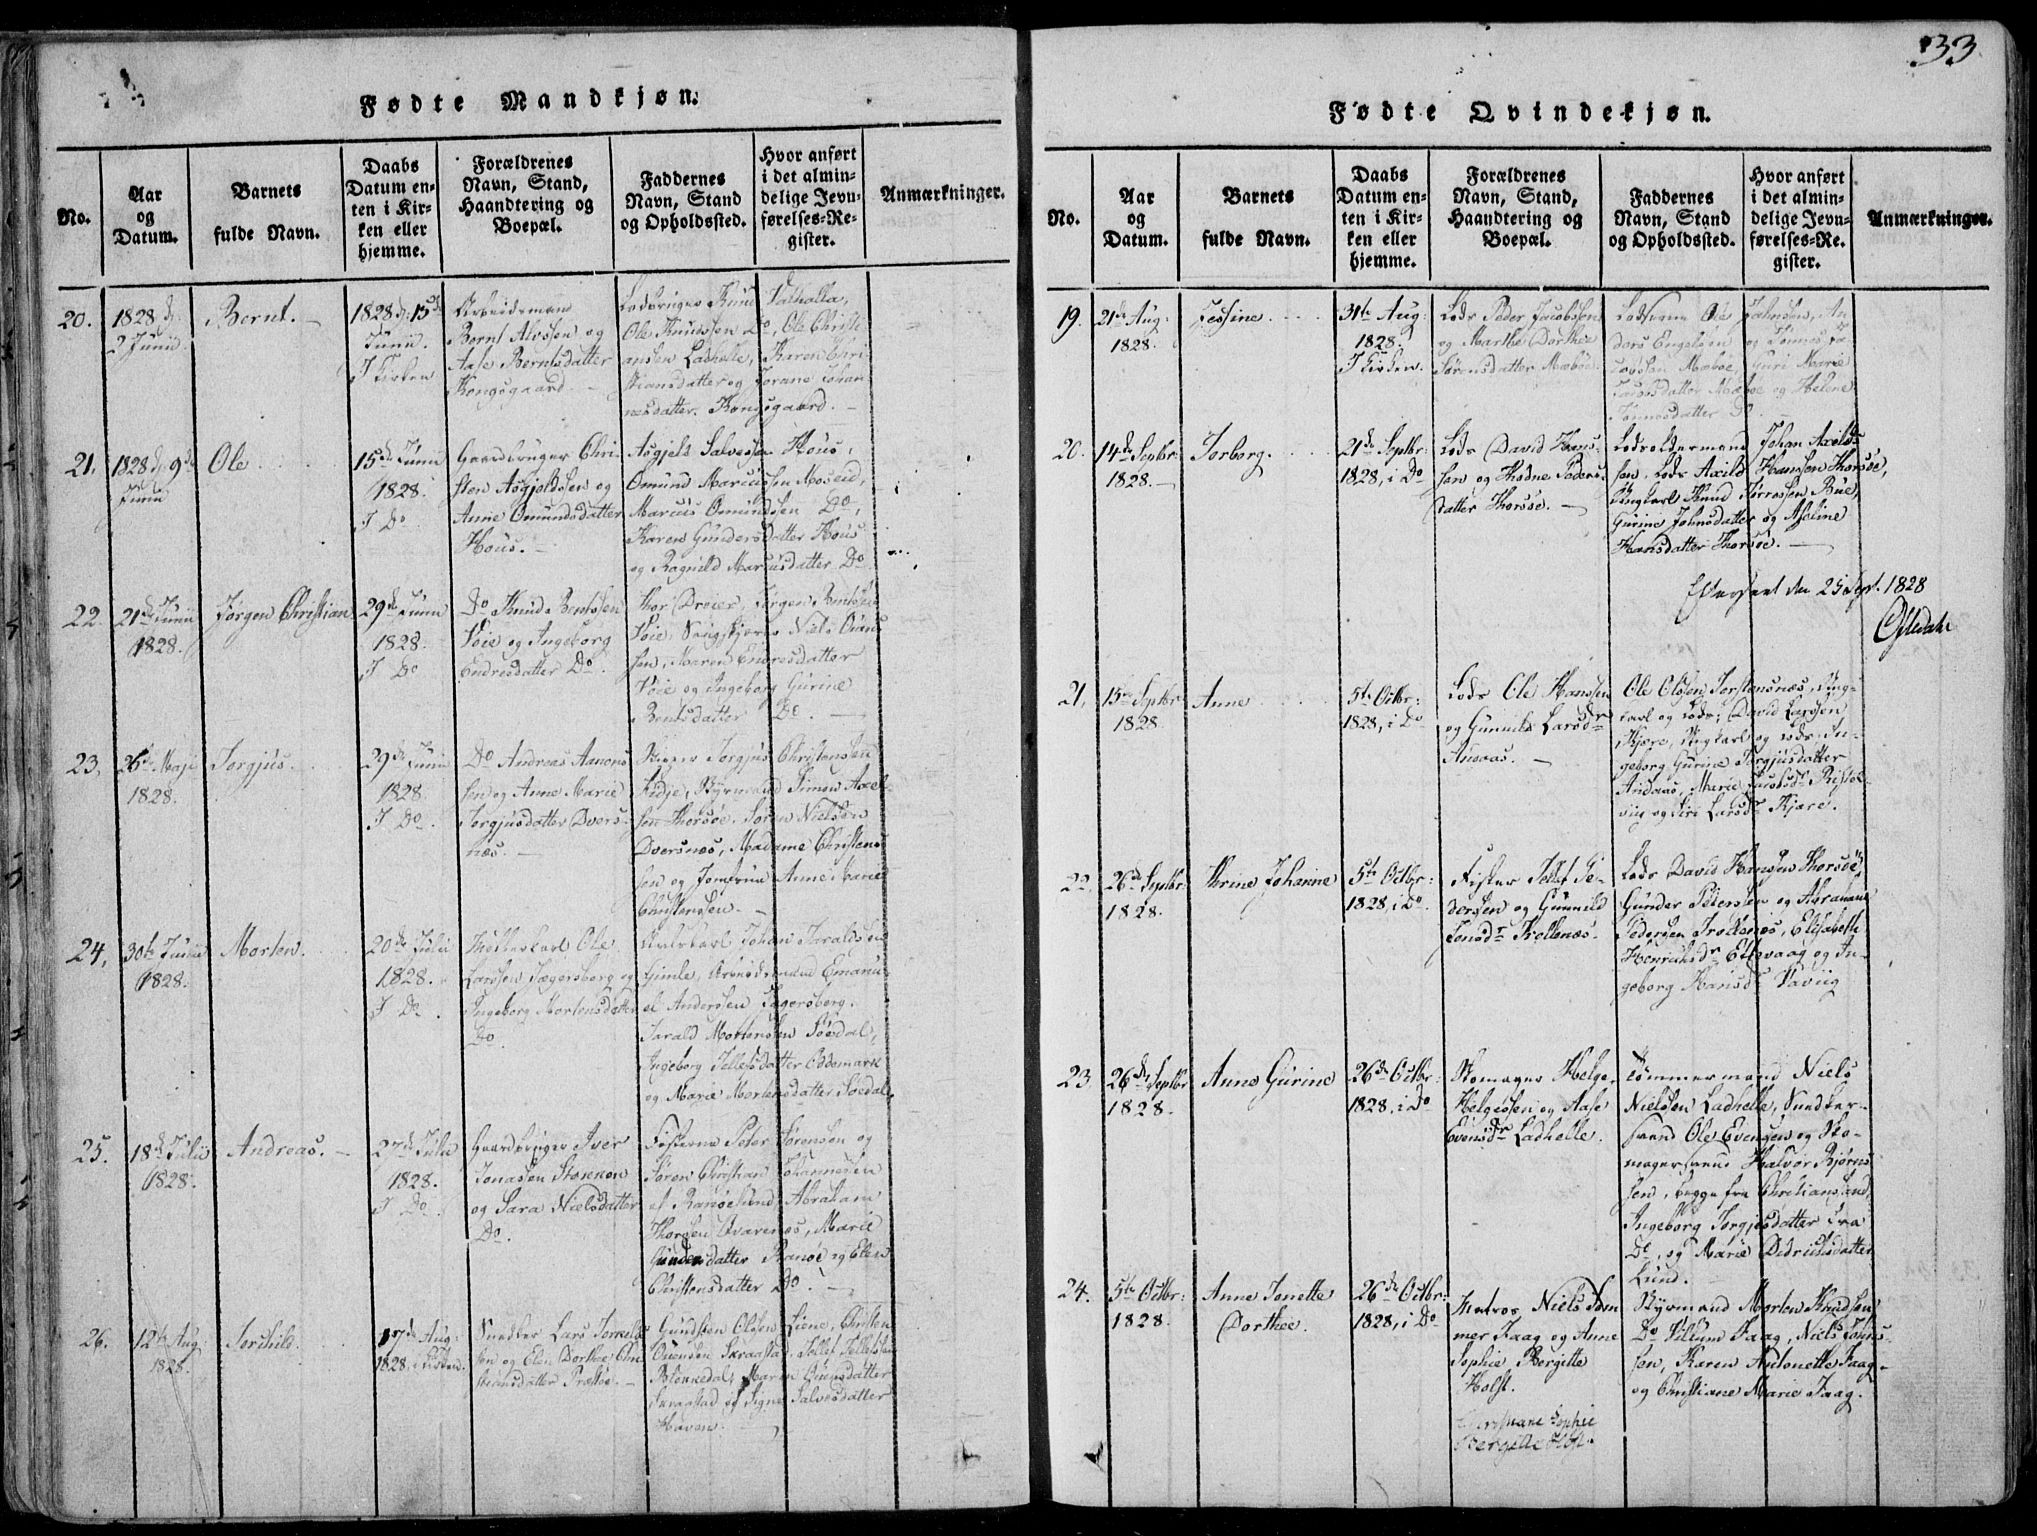 33
Fødte Mandkjøn.
No.
Aar
og
Datum.
Barnets
fulde Navn.
Daabs
Datum en-
ten i Kir-
ken eller
hjemme.
Forældrenes
Navn, Stand,
Haandtering og
Boepæl.
Faddernes
Navn, Stand
og Opholdssted.
Hvor anført
i det almin-
delige Jevn-
førelses-Re-
gister.
Anmærkninger.
20.
1828 d.
2 Junii
Bernt.
1828 d. 15de
Junii.
I Kirken
Arbeidsmand
Bernt Alvssen og
Aase Berntsdatter
Kongsgaard.
Ole Knudssen Do, Ole Christi-
ansen Ladhelle, Karen Chri-
stiansdatter og Jorane Johan-
nesdatter Kongsgaard.
21.
1828 d. 9de
Junii
Ole
15de Junii
1828.
I Do
Gaardbruger Chri-
sten Asgjeldssen og
Anne Omundsdatter
Hous.
Asgjeld Salvessen Hous,
Omund Marcussen Moseid,
Marcus Omundsen Do,
Karen Gundersdatter Hous
og Ragnild Marcusdatter Do
22.
21de Junii
1828.
Jørgen Christian
29de Junii
1828.
I Do
Do Knud Bentssen
Voie og Ingeborg
Endresdatter Do.
Thor Dreier, Jørgen Bentssen
Voie, Niels
sen, Maren Endresdatter
Voie og Ingeborg Gurine
Bentsdatter Do.
23.
26de Maji
1828.
Torgjus.
29de Junii
1828
I Do.
Do Andreas Aanons-
sen og Anne Marie
Torgjusdatter Dvers-
næs.
Torgjus Christensen
Kidje, Styrmand Simon Axel-
sen Thorsøe. Søren Nielsen
Dversnæs, Madame Christen-
sen og Jomfrue Anne Marie
Christensen.
24.
30te Junii
1828.
Morten.
20de Julii
1828.
I Do.
Ole
Larssen Jægersberg og
Ingeborg Mortensdatter
Do.
Johan Taraldsen
Gimle, Arbeidsmand Emanu-
el Anderssen Jægersberg.
Tarald Mortenssen Søedal,
Ingeborg Tellefsdatter Oddemark
og Marie Mortensdatter Søedal.
25.
18de Julii
1828.
Andreas.
27de Julii
1828.
I Do
Gaardbruger Iver
Jonassen Stokken
og Sara Nielsdatter
Do.
Peter Sørensen og
Søren Christian Johannesen
af Randøesund, Abraham
Thorsen Kvarenes, Marie
Gundersdatter Randøe og Elen
Christensdatter Do.
26.
12te Aug.
1828.
Torchild.
17de Aug:
1828, i Kirken.
Snedker Lars Torkelds-
sen og Elen Dorthee Chri-
stiansdatter Præstøe.
Gundsten Olssen Liene, Christen
Ouensen Skraastad, Tellef Tellefssen
Blenkedal, Maren Ouensdatter
Skraastad og Signe Salvesdatter
Haven.
Fødte Qvindekjøn.
No.
Aar
og
Datum.
Barnets
fulde Navn.
Daabs
Datum en-
ten i Kir-
ken eller
hjemme.
Forældrenes
Navn, Stand,
Haandtering og
Boepæl.
Faddernes
Navn, Stand
og Opholdssted.
Hvor anført
i det almin-
delige Jevn-
førelses-Re-
gister.
Anmærkninger.
19.
21de Aug:
1828.
Jessine.
31te Aug:
1828.
I Kirken.
Lods Peder Jacobssen
og Marthe Dorthee
Sørensdatter Mæbøe.
Ole Johnsen, An-
ders Engelsen og Tønnes Ja-
cobssen Mæbøe, Guri Marie
Jacobsdatter Mæbøe og Helene
Tønnesdatter Do
20.
14de Septbr:
1828.
Torborg.
21de Septbr:
1828, i Do
Lods David Hans-
sen og Thodne Peders-
datter Thorsøe.
Lodsoldermand Johan Axels-
sen, Lods Axild Hanssen Thorsøe,
Ungkarl Knud Torressen Bue,
Gurine Johnsdatter og Aseline
Hansdatter Thorsøe.
Efterseet den 25 Sept. 1828
Oftedahl
21.
15de Septbr:
1828.
Anne
5te Octbr:
1828, i Do
Lods Ole Hanssen
og Gunnild Larsdr
Andaas.
Ole Olssen Torstensnæs, Ung-
karl og Lods; David Larssen
Kjære, Ungkarl og Lods. In-
geborg Gurine Torgjusdatter
Andaas, Marie Jacobsdr Ristøl-
viig og Siri Larsdr Kjære.
22.
26de Septbr:
1828.
Thrine Johanne
5te Octbr:
1828, i Do
Fisker Tellef Pe-
dersen og Gunnild
Jensdr Trollenæs.
Lods David Hanssen Thorsøe,
Gunder Pederssen og Abraham
Pedersen Trollenæs, Elisabeth
Henrichsdr Ettevaag og In-
geborg Hansdr Vaviig
23
26de Septbr
1828.
Anne Gurine
26de Octbr:
1828, i Do
Skomager Helge
Helgessen og Aase
Evensdr Ladhelle.
Tømmermand Niels
Nielssen Ladhelle, Snedker-
svend Ole Evensen og Sko-
magersvend Halvor Bjørns-
sen, begge fra Christiansand,
Ingeborg Torgjesdatter fra
Do, og Marie Didrichsdatter
Lund.
24.
5te Octbr:
1828.
Anne Jonette
Dorthee.
26de Octbr:
1828, i Do
Matros Niels Tøm-
mer Faag og Anne
Sophie Bergitte
Holst.
Christiane Sophie
Bergitte Holst.
Styrmand Morten Knudsen
Do Villum Faag, Niels Johns-
sen, Karen Antonette Faag
og Christiane Marie Faag.